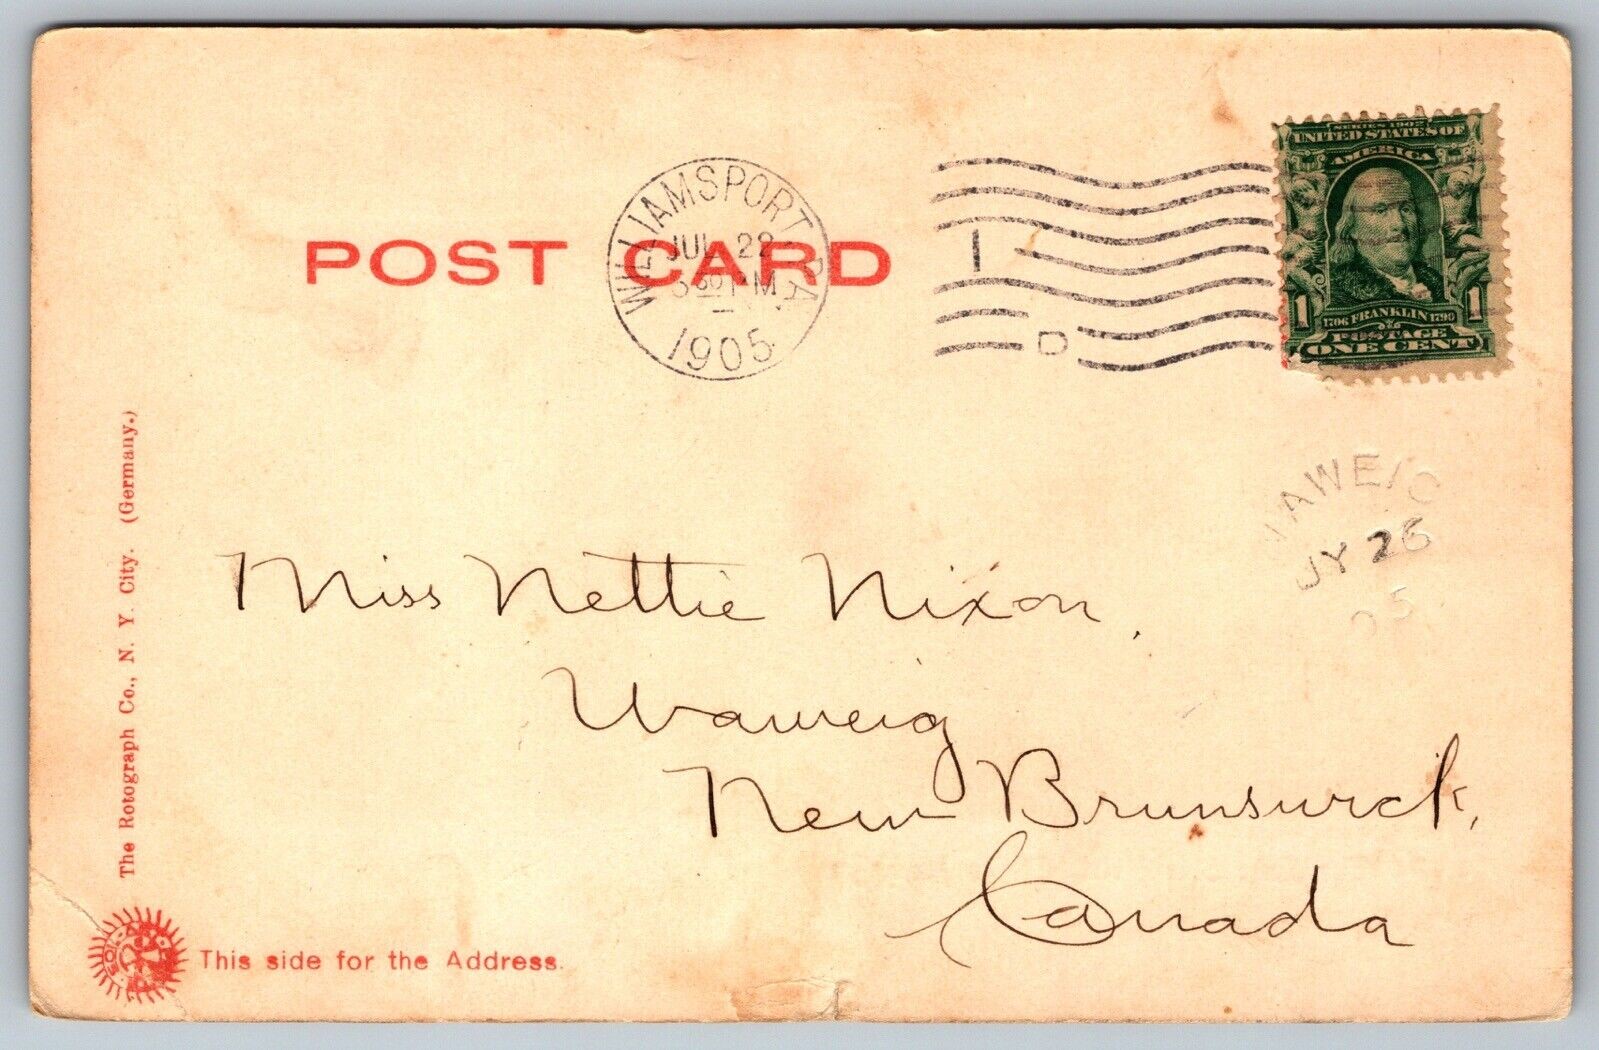 POST CARD
WILLIAMSPORT, PA.
JUL 22
30 PM
1905
I
D
SERIES 1902
UNITED STATES OF
AMERICA
1 1
1706 FRANKLIN 1790
POSTAGE
ONE CENT
WAWEIG
JY 26
05
Miss Nettie Nixon,
Waweig
New Brunswick,
Canada
The Rotograph Co., N. Y. City. (Germany.)
This side for the Address.